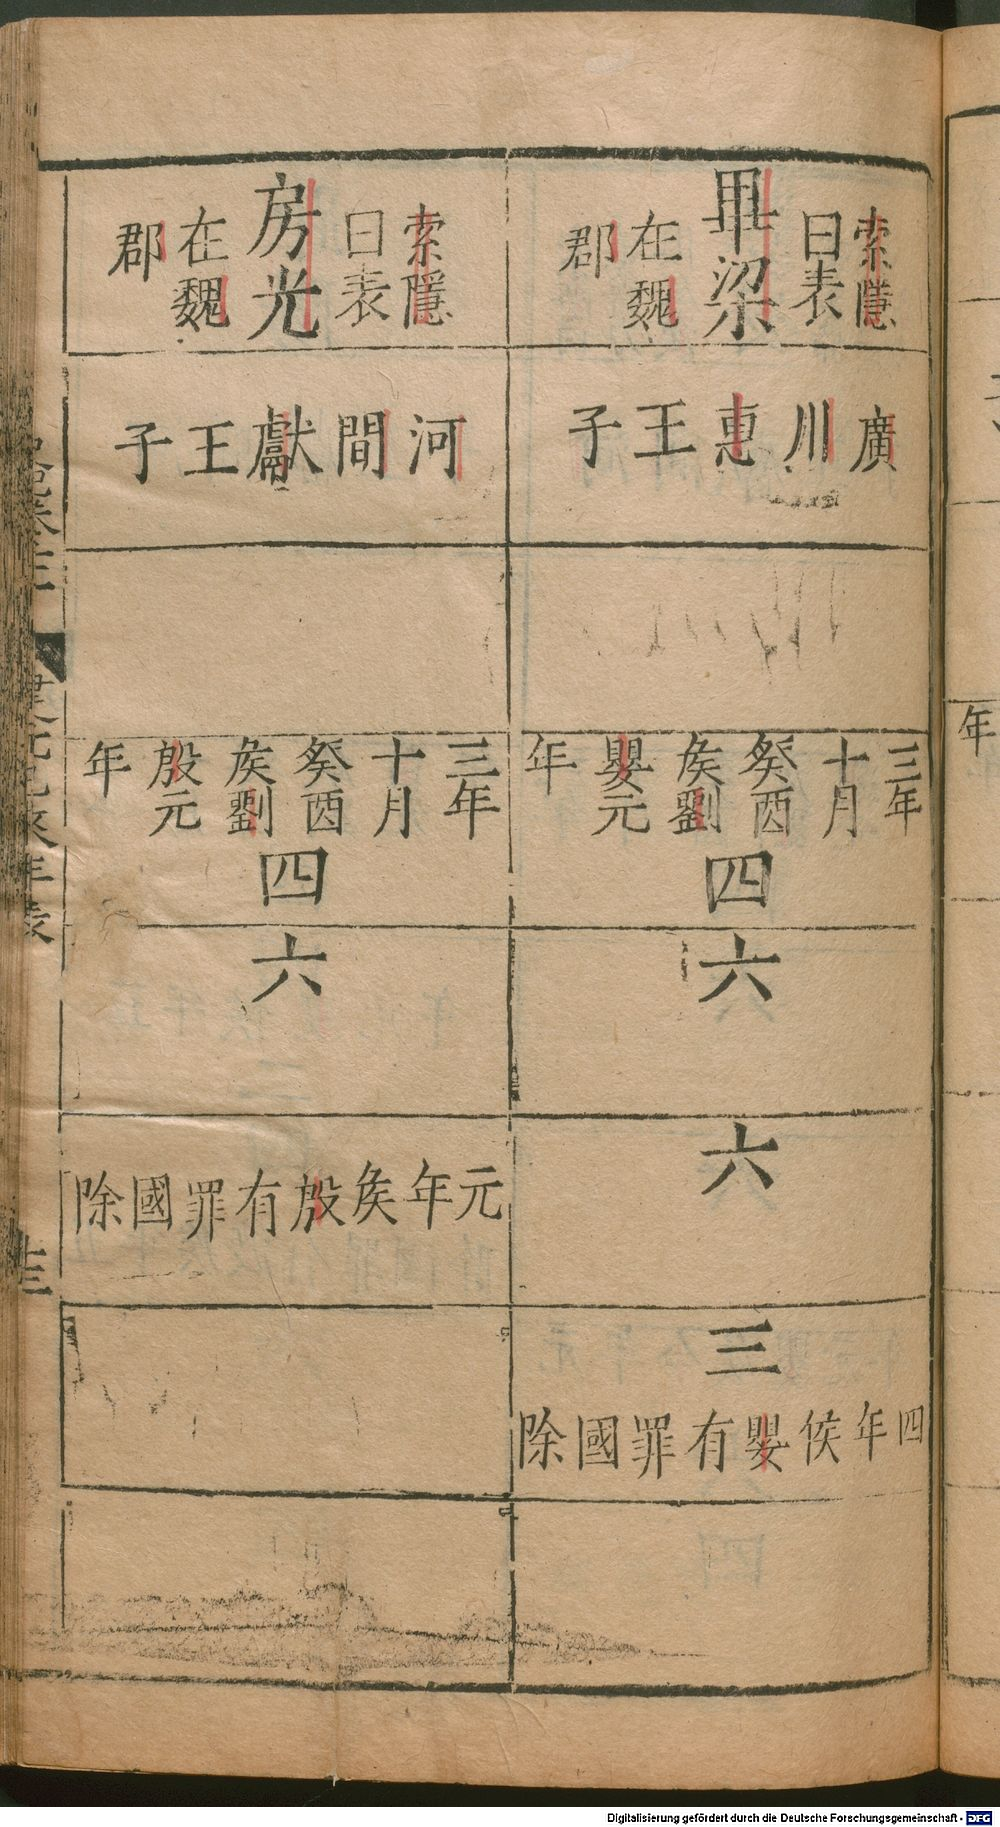 索隱
曰表
畢梁
在魏
郡
廣川惠王子
三年
十月
癸酉
矦劉
嬰元
年
四
六
六
三
四年侯嬰有罪國除
索隱
曰表
房光
在魏
郡
河間獻王子
三年
十月
癸酉
矦劉
殷元
年
四
六
元年矦殷有罪國除
年表
十三
年
Digitalisierung gefördert durch die Deutsche Forschungsgemeinschaft - DFG